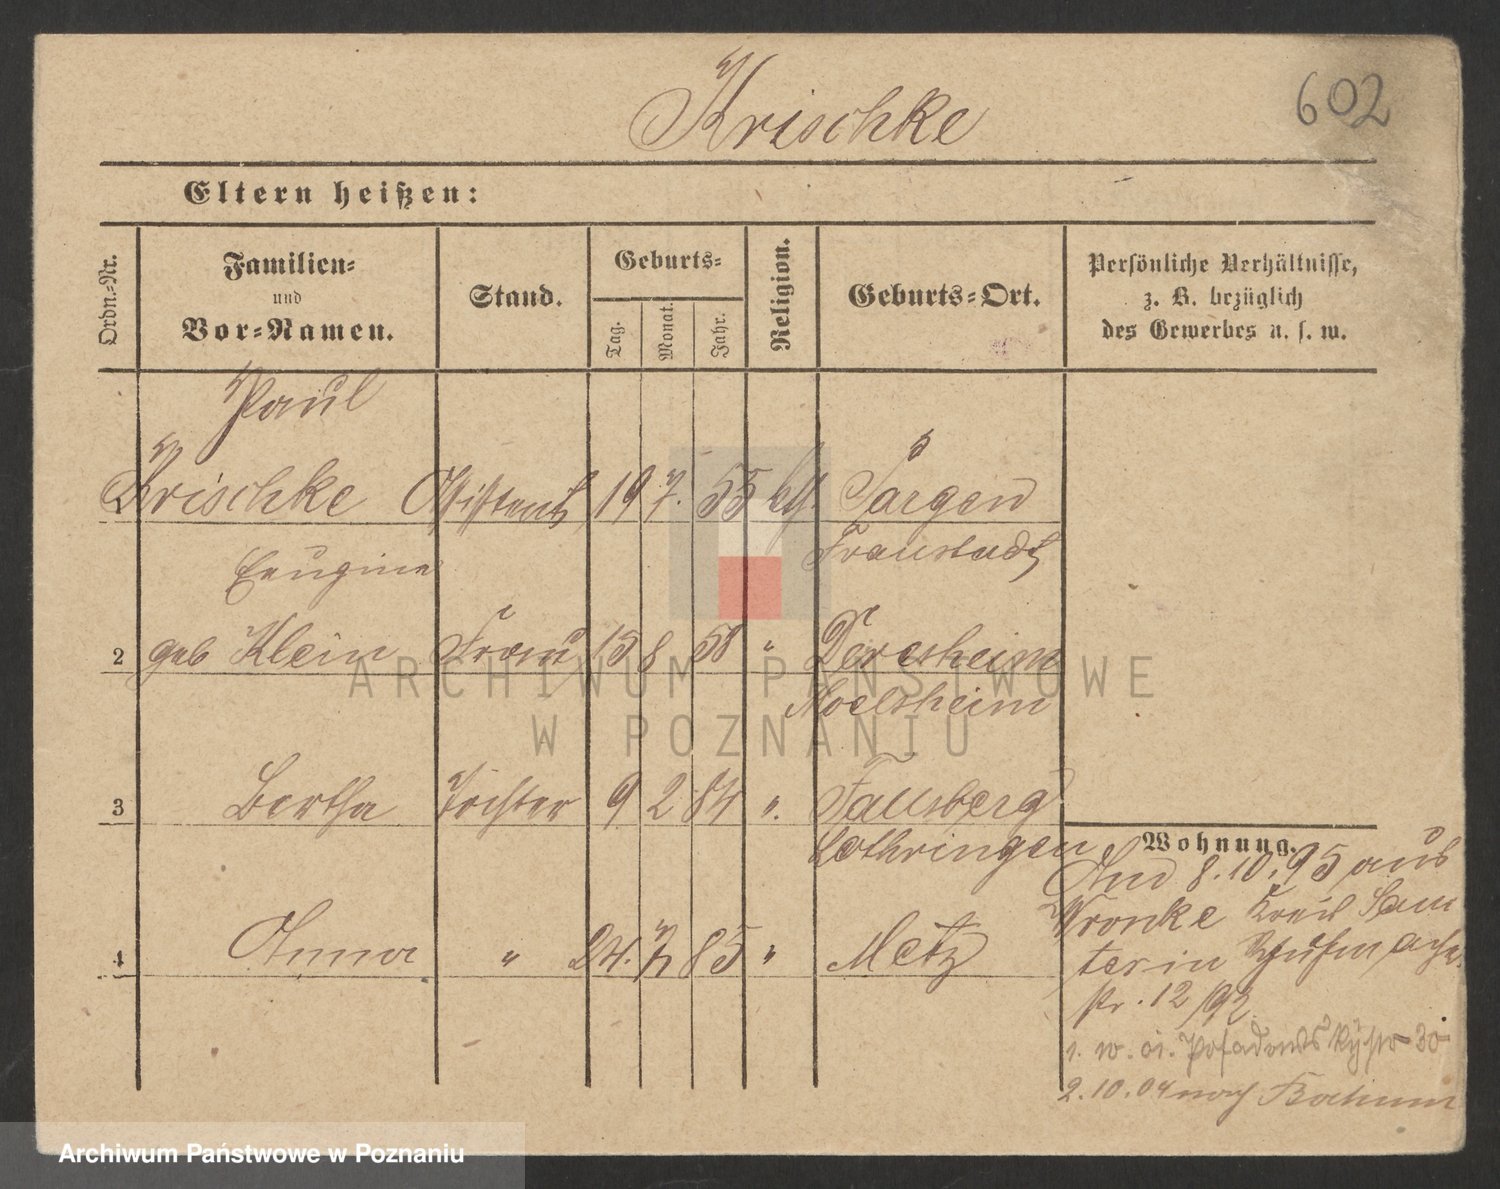 Krischke
602
Eltern heißen:
Ordn.-Nr.
Familien-
und
Vor-Namen.
Stand.
Geburts-
Tag.
Monat.
Jahr.
Religion.
Geburts-Ort.
Persönliche Verhältnisse,
z. B. bezüglich
des Gewerbes u. s. w.
Paul
1 Krischke Assistent 19 7. 55 Sargen
Fraustadt
Eugine
2 geb Klein Frau 15 8 58 " Deresheim
Moelsheim
3 Bertha Tochter 9 2 84 ". Falisberg
Lothringen
4 Anna " 24. 7 85 " Metz
Wohnung.
And 8.10.95 aus
Wronke Kreis Sam
ter in
Str. 12/92
1. 10. 01. Posadowskystr 30
2.10.04 nach Bochum
ARCHIWUM PAŃSTWOWE
W POZNANIU
Archiwum Państwowe w Poznaniu